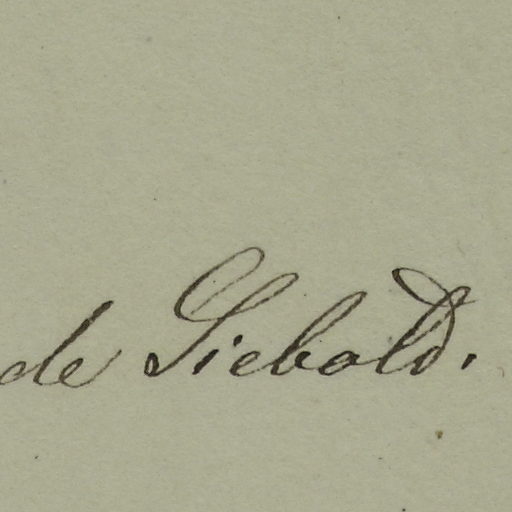 de Siebold.